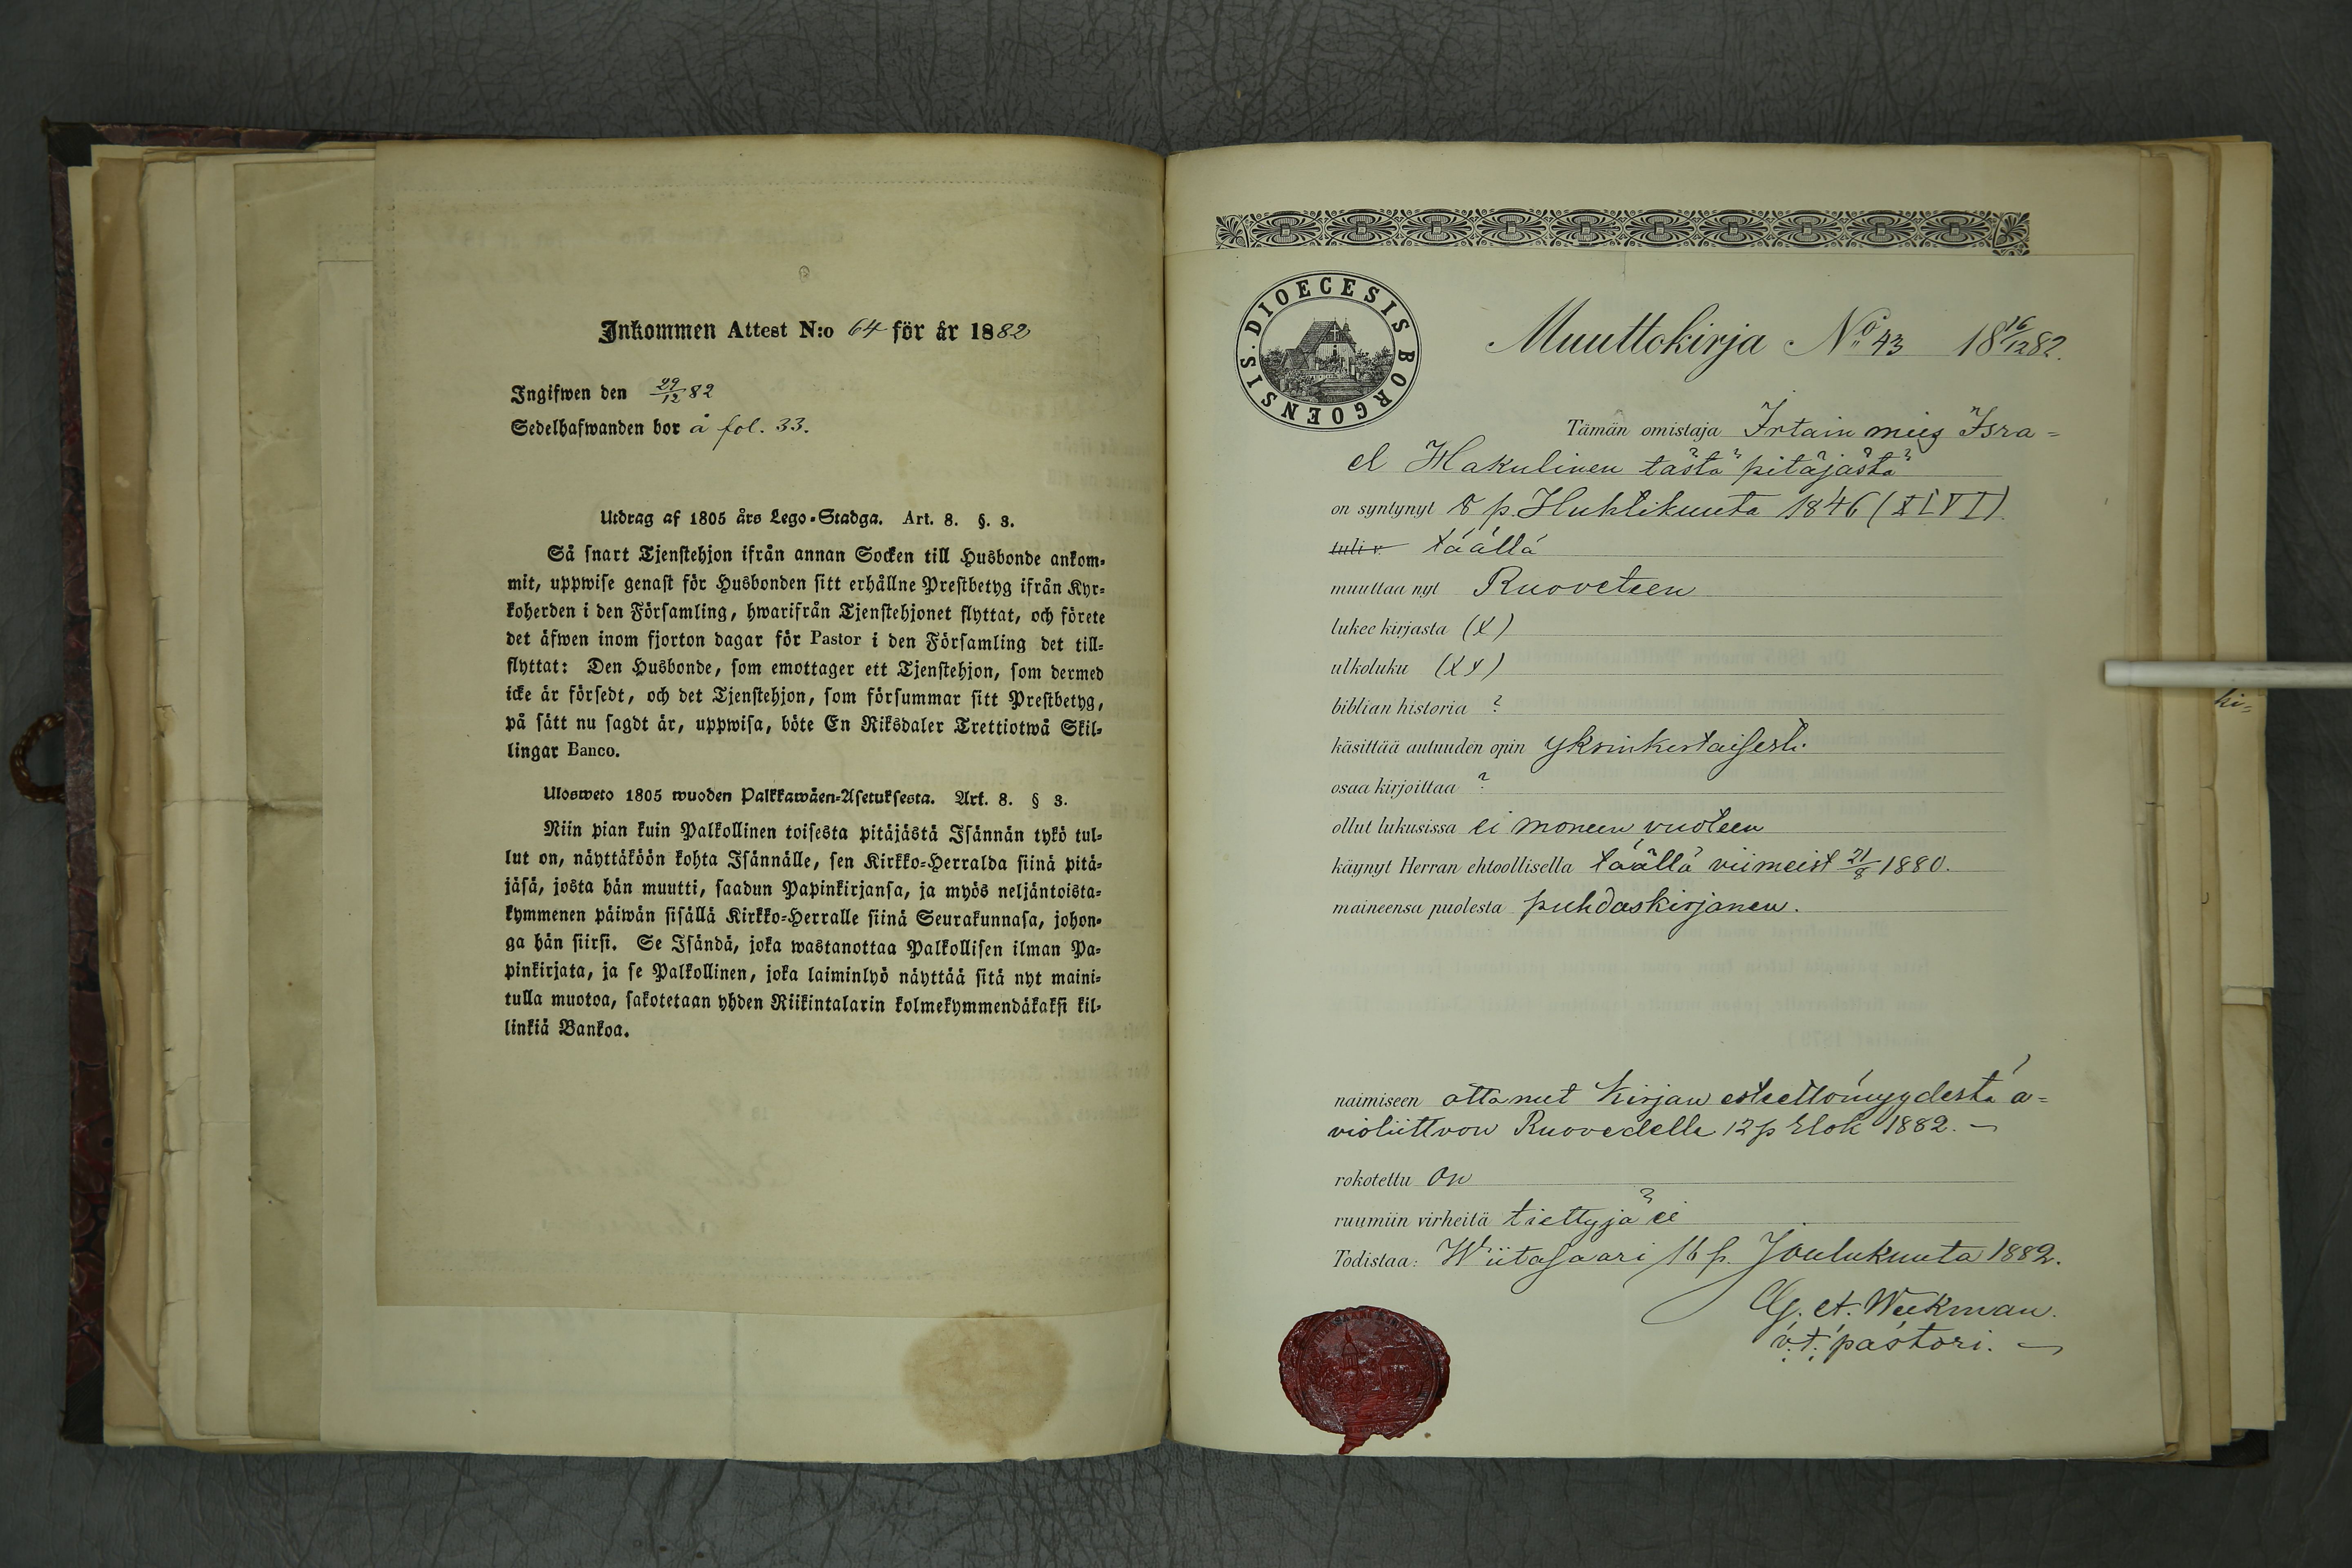 Inkommen Attest N:o 64 för år 1882
Ingifwen den 29/12 82
Sedelhafwanden bor å fol. 33.
Utdrag af 1805 års Lego-Stadga. Art. 8. §. 3.
Så snart Tjenstehjon ifrån annan Socken till Husbonde ankom-
mit, uppwise genast för Husbonden sitt erhållne Prestbetyg ifrån Kyr-
koherden i den Församling, hwarifrån Tjenstehjonet flyttat, och förete
det äfwen inom fjorton dagar för Pastor i den Församling det till-
flyttat: Den Husbonde, som emottager ett Tjenstehjon, som dermed
icke är försedt, och det Tjenstehjon, som försummar sitt Prestbetyg,
på sätt nu sagdt är, uppwisa, böte En Riksdaler Trettiotwå Skil-
lingar Banco.
Ulosweto 1805 wuoden Palkkawäen-Asetuksesta. Art. 8. § 3.
Niin pian kuin Palkollinen toisesta pitäjästä Isännän tykö tul-
lut on, näyttäköön kohta Isännälle, sen Kirkko-Herralda siinä pitä-
jäsä, josta hän muutti, saadun Papinkirjansa, ja myös neljäntoista-
kymmenen päiwän sisällä Kirkko-Herralle siinä Seurakunnasa, johon-
ga hän siirsi. Se Isändä, joka wastanottaa Palkollisen ilman Pa-
pinkirjata, ja se Palkollinen, joka laiminlyö näyttää sitä nyt maini-
tulla muotoa, sakotetaan yhden Riikintalarin kolmekymmendäkaksi kil-
linkiä Bankoa.
DIOECESIS BORGOENSIS.
Muuttokirja No 43 18 16/12 82.
Tämän omistaja Irtain mies Isra-
el Hakulinen tästä pitäjästä
on syntynyt 8 p. Huhtikuuta 1846 (XLVI)
tuli v. täällä
muuttaa nyt Ruoveteen
lukee kirjasta (x)
ulkoluku (x x)
biblian historia ?
käsittää autuuden opin yksinkertaisesti.
osaa kirjoittaa ?
ollut lukusissa ei moneen vuoteen
käynyt Herran ehtoollisella täällä viimeist 21/8 1880.
maineensa puolesta puhdaskirjanen.
naimiseen ottanut kirjan esteettömyydestä a-
violiittoon Ruovedelle 12 p Elok 1882.
rokotettu on
ruumiin virheitä tiettyjä ei
Todistaa: Wiitasaari 16 p. Joulukuuta 1882.
Weekman.
v.t. pastori.
ki-